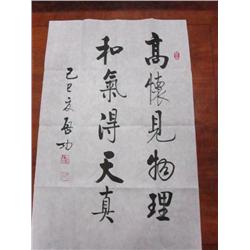 高懷見物理
和氣得天真
己巳夏啓功